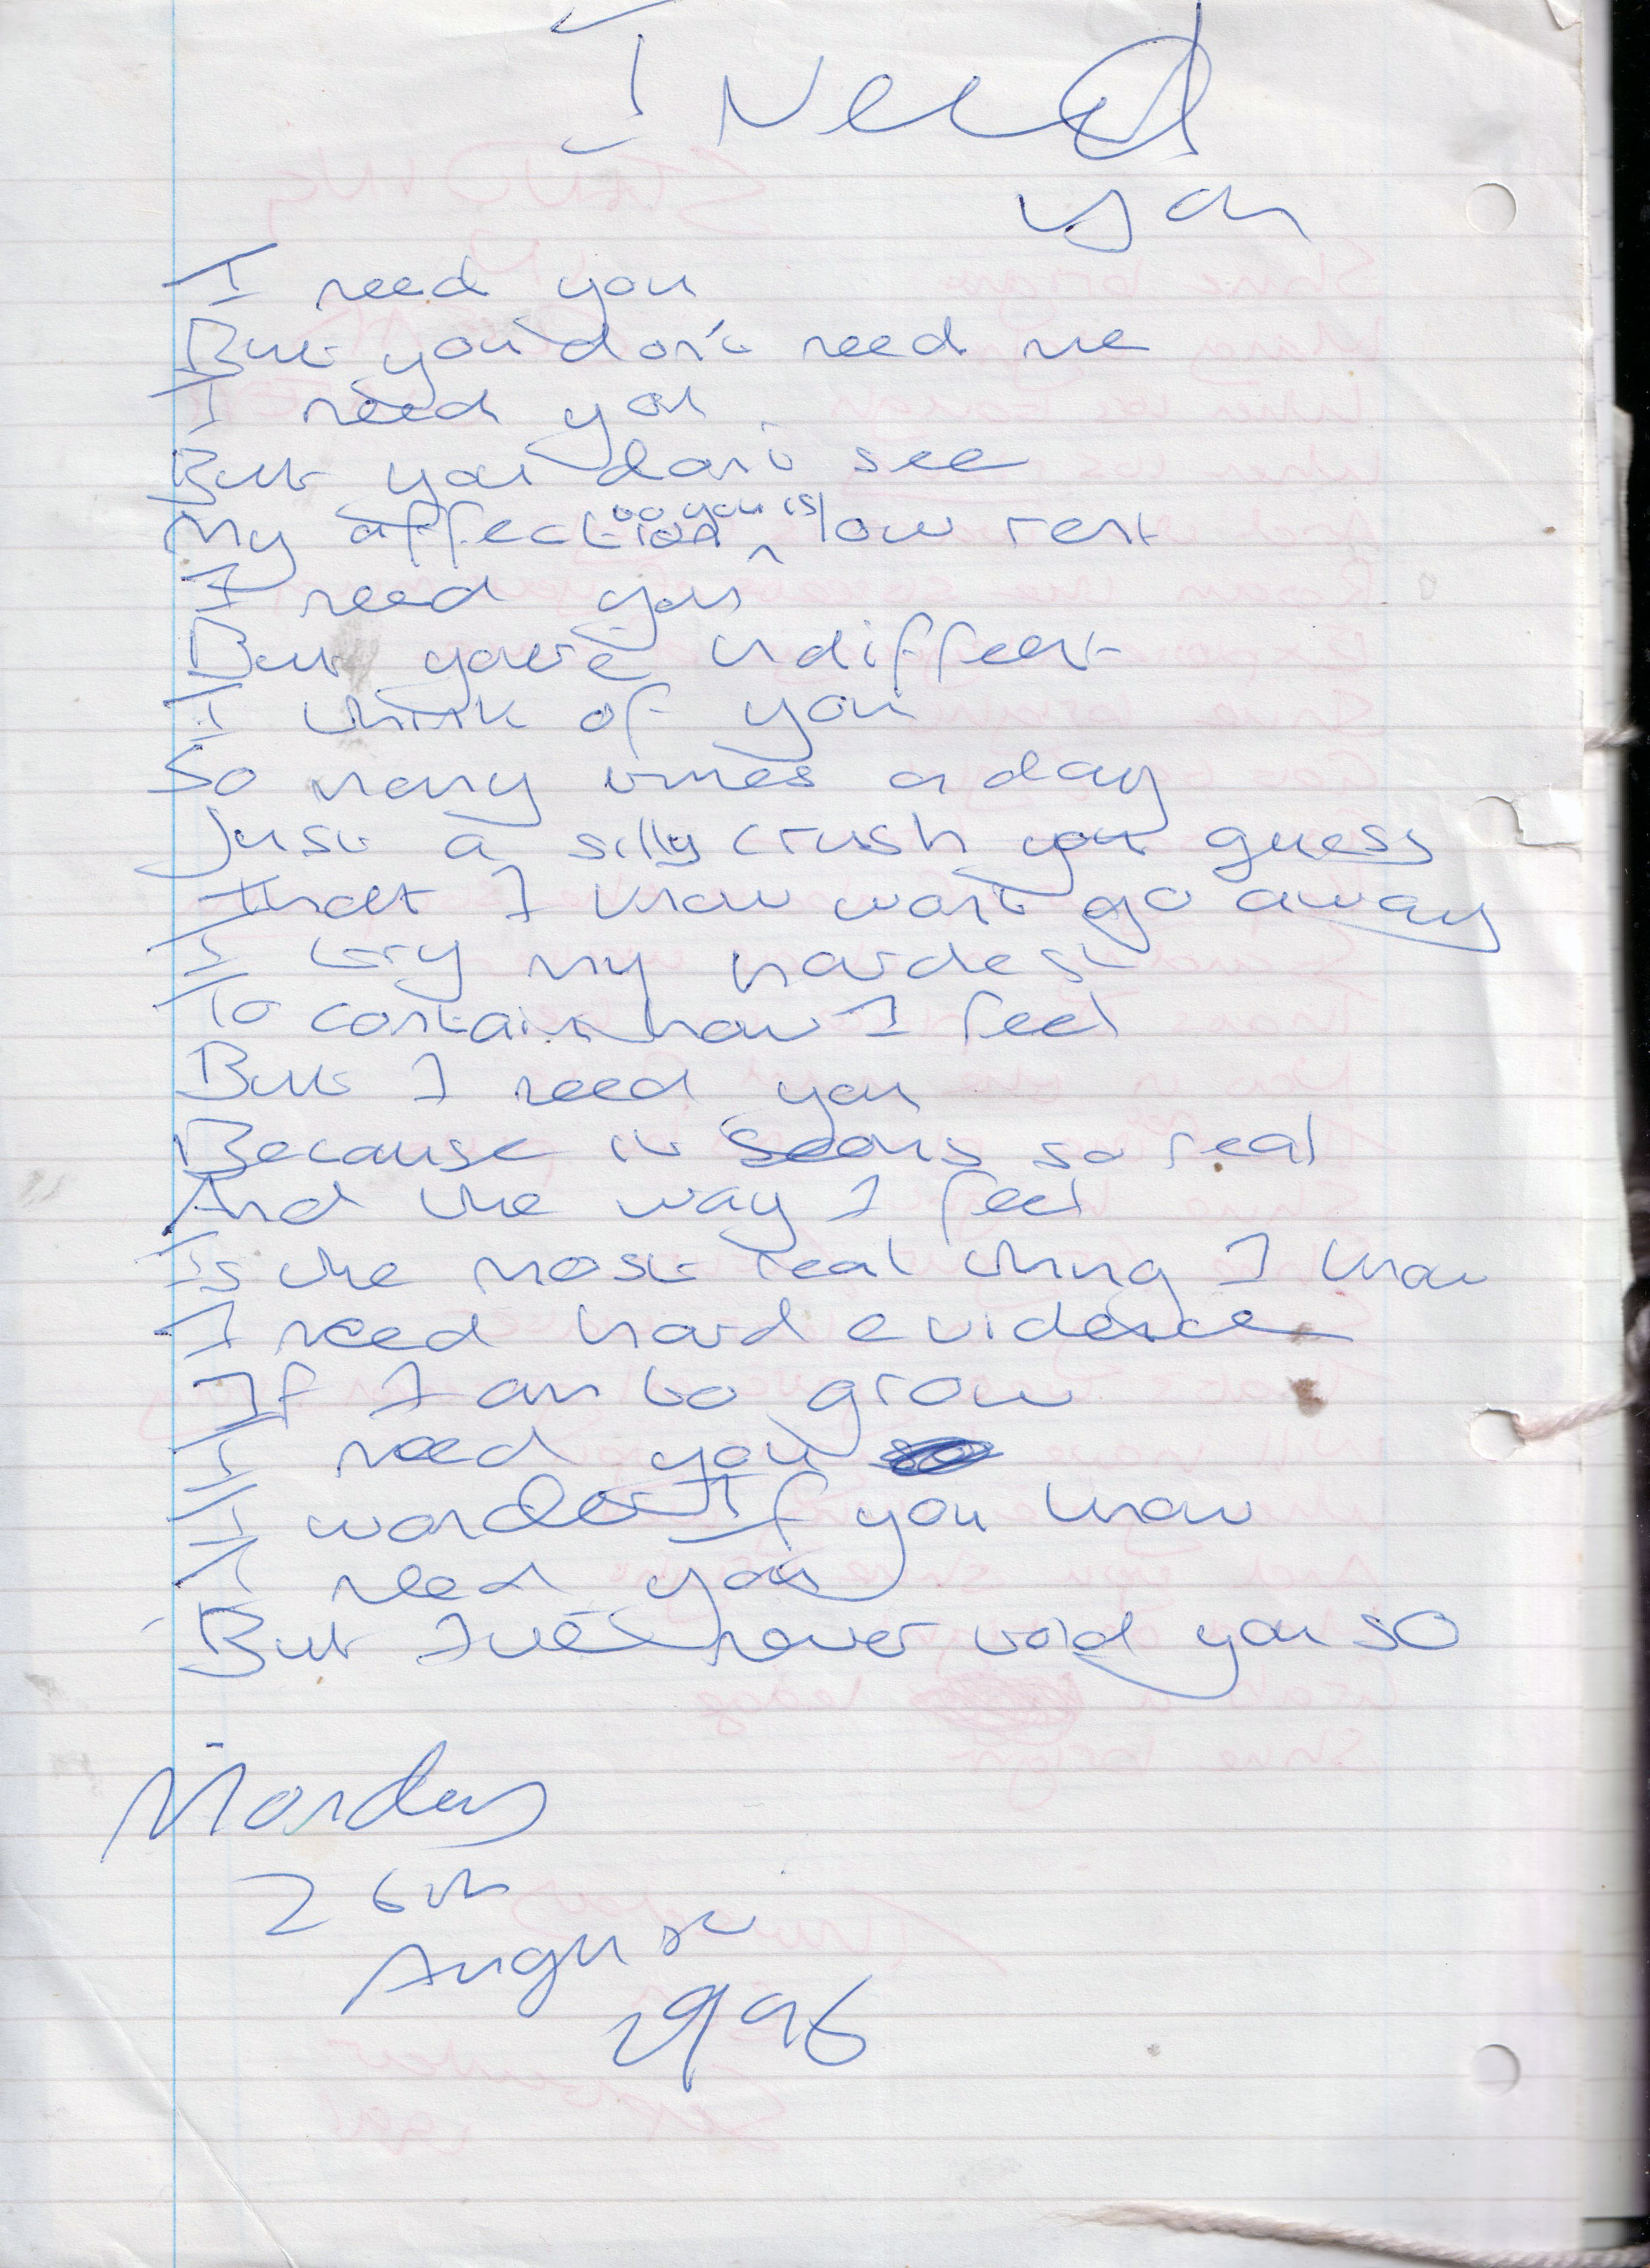 I Need
you
I need you
But you don't need me
I need you
But you don't see
My affection to you is low rent
I need you
But you're indiffeent
I think of you
So many times a day
Just a silly crush you guess
That I know won't go away
I try my hardest
To contain how I feel
But I need you
Because it seems so real
And the way I feel
Is the most real thing I know
I need hard evidence
If I am to grow
I need you
I wonder if you know
I need you
But I've never told you so
Monday
26th
August
1996